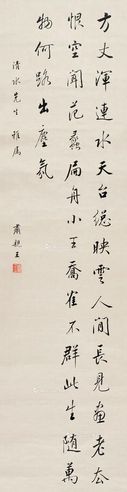 方丈渾連水天台總映雲人間長見畫老去
恨空聞范蠡扁舟小王喬隺不群此生隨萬
物何路出塵氛
清水先生雅屬
肅親王